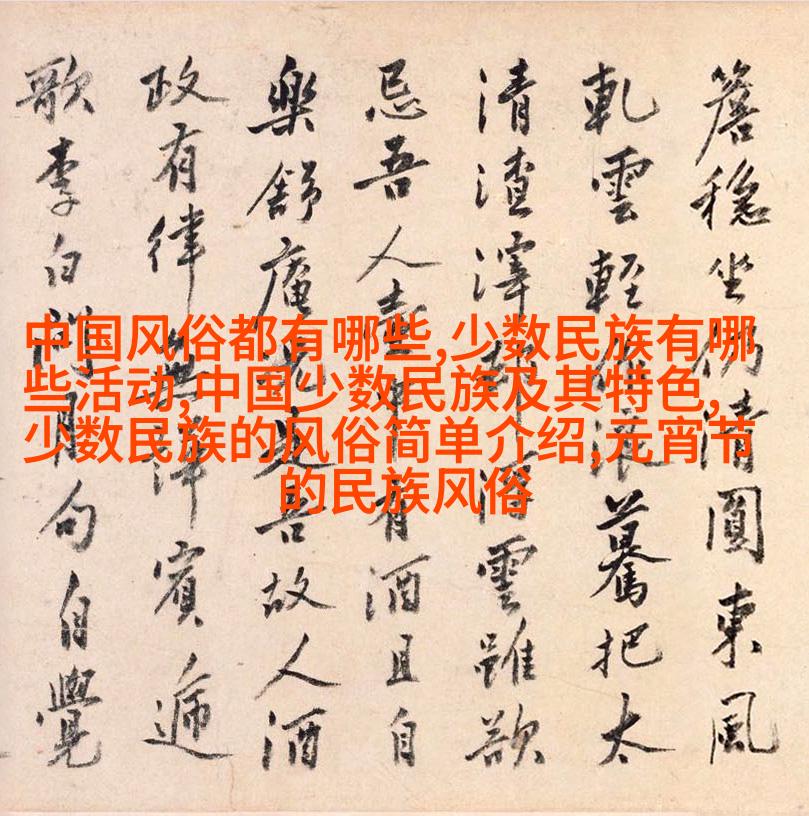 中国风俗都有哪些,少数民族有哪
些活动,中国少数民族及其特色,
少数民族的风俗简单介绍,元宵节
的民族风俗
簷穩坐清圓東風
軋雲輕驀把太
清渣滓雲雖欲
忌吾人有酒且自
樂舒庵吾故人酒
政有律無賓遞
歌李白問月句自覺